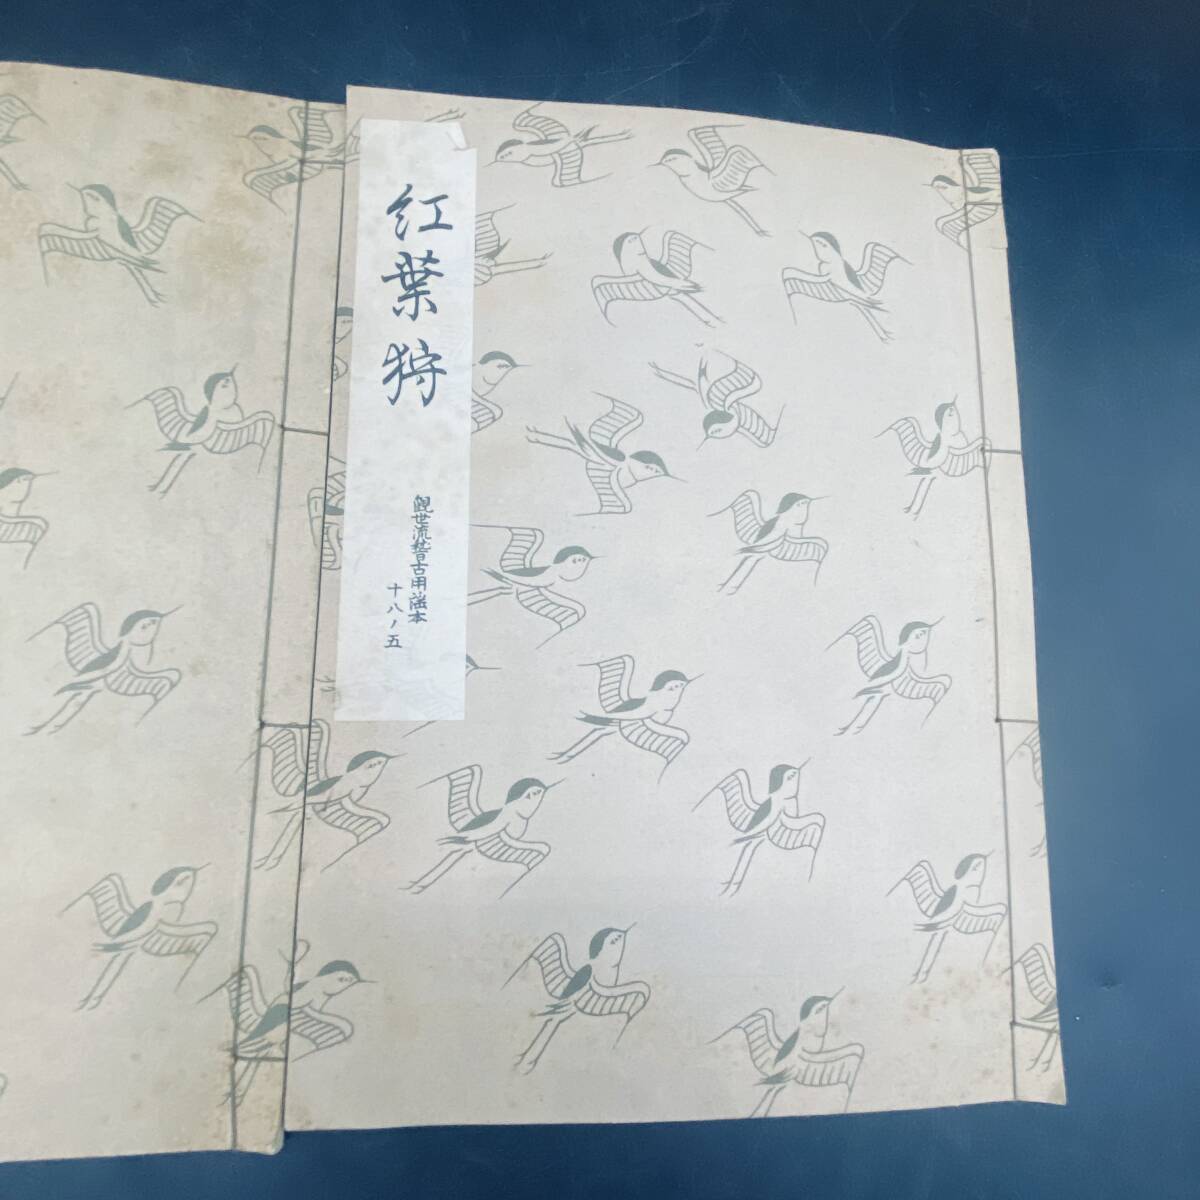 紅葉狩
觀世流稽古用謡本
十八ノ五